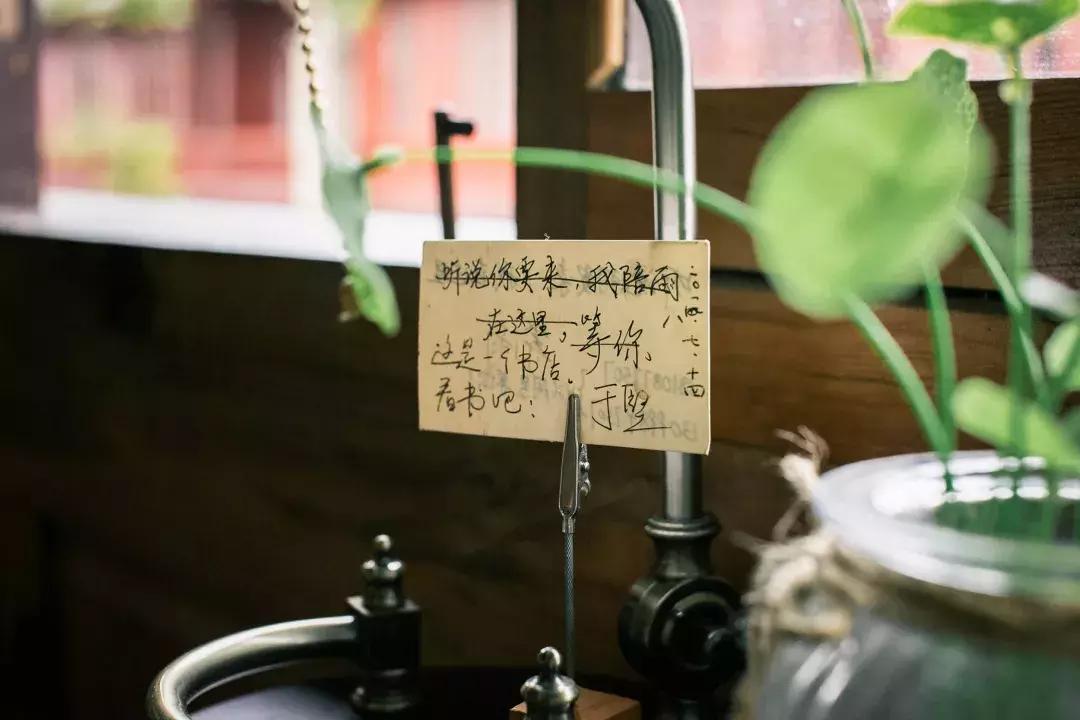 听说你要来，我陪雨
在这里。等你。
这是一个书店。
看书吧！于坚
二〇一四.七.十四